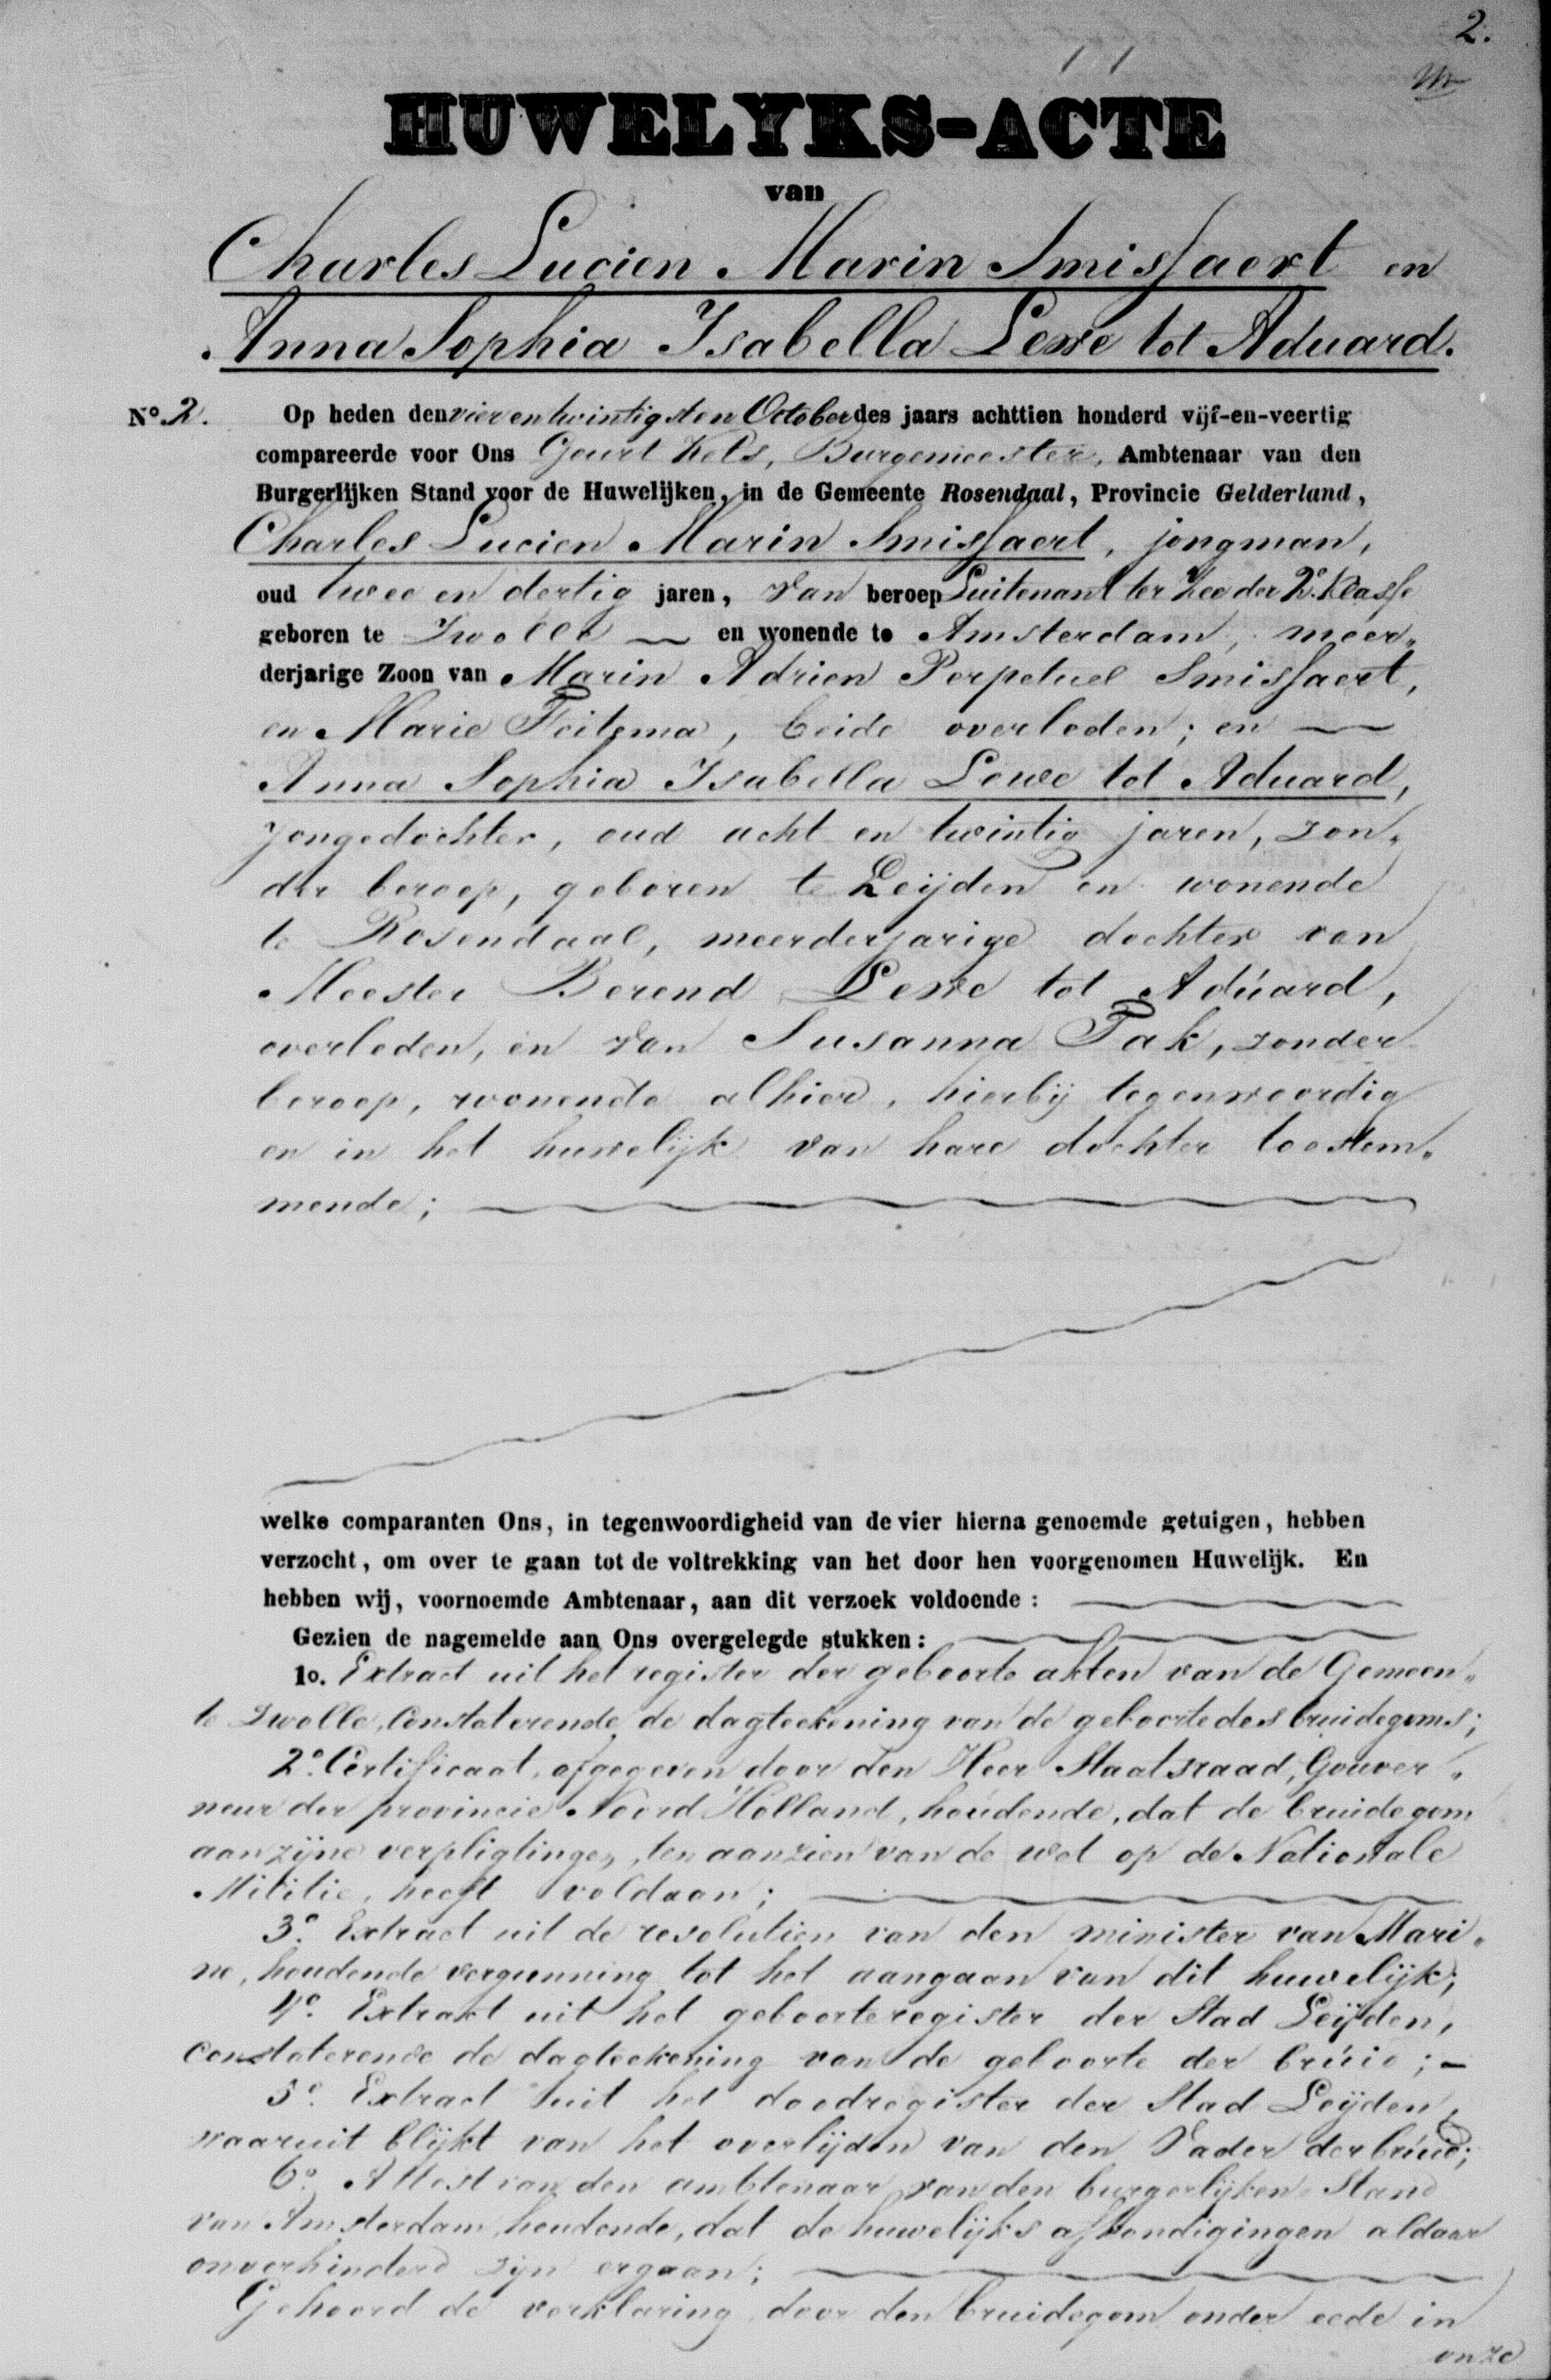 2.
HUWELYKS-ACTE
van
Charles Lucien Marin Smissaert en
Anna Sophia Isabella Lewe tot Aduard.
No. 2. Op heden den vier en twintigsten October des jaars achttien honderd vijf-en-veertig
compareerde voor Ons Geurt Kets, Burgemeester, Ambtenaar van den
Burgerlijken Stand voor de Huwelijken, in de Gemeente Rosendaal, Provincie Gelderland,
Charles Lucien Marin Smissaert, jongman,
oud twee en dertig jaren, van beroep Luitenant ter Zee der 2e Klasse
geboren te Zwolle en wonende te Amsterdam, meer„
derjarige Zoon van Marin Adrien Perpetuel Smissaert,
en Marie Feitsma, beide overleden; en
Anna Sophia Isabella Lewe tot Aduard,
jongedochter, oud acht en twintig jaren, zon„
der beroep, geboren te Leijden en wonende
te Rosendaal, meerderjarige dochter van
Meester Berend Lewe tot Aduard,
overleden, en van Susanna Tak, zonder
beroep, wonende alhier, hierbij tegenwoordig
en in het huwelijk van hare dochter toestem„
mende;
welke comparanten Ons, in tegenwoordigheid van de vier hierna genoemde getuigen, hebben
verzocht, om over te gaan tot de voltrekking van het door hen voorgenomen Huwelijk. En
hebben wij, voornoemde Ambtenaar, aan dit verzoek voldoende:
Gezien de nagemelde aan Ons overgelegde stukken:
1o. Extract uit het register der geboorte akten van de Gemeen„
te Zwolle, Constaterende de dagteekening van de geboorte des bruidegoms;
2o. Certificaat, afgegeven door den Heer Staatsraad, Gouver„
neur der provincie Noord Holland, houdende, dat de bruidegom
aan zijne verpligtingen, ten aanzien van de wet op de Nationale
Militie, heeft voldaan;
3o. Extract uit de resolutien van den minister van Mari„
ne, houdende vergunning tot het aangaan van dit huwelijk;
4o. Extrakt uit het geboorteregister der Stad Leijden,
Constaterende de dagteekening van de geboorte der bruid; –
5o. Extract uit het doodregister der Stad Leijden,
waaruit blijkt van het overlijden van den Vader der bruid;
6o. Attest van den ambtenaar van den burgerlijken Stand
van Amsterdam, houdende, dat de huwelijks afkondigingen aldaar
onverhinderd zijn ergaan;
Gehoord de verklaring door den bruidegom onder eede in
onze